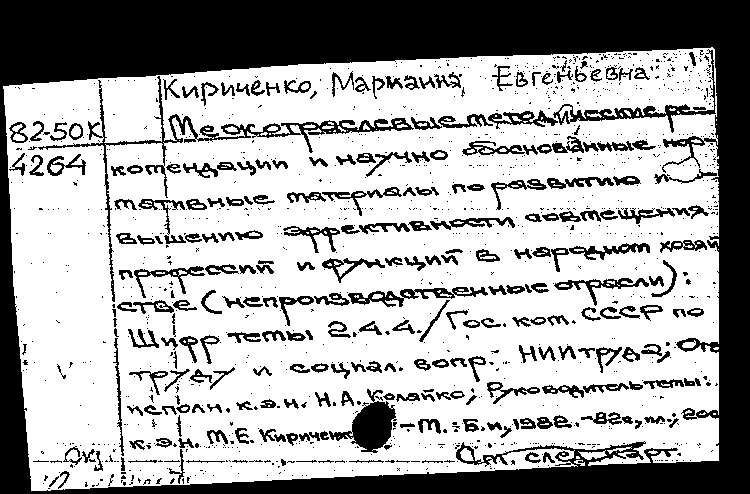 Кириченко, Марианна Евгеньевна.
82-50К Межотраслевые методические ре-
4264 комендации и научно обоснованные нор-
мативные материалы по развитию и по-
вышению эффективности совмещения
профессий и функций в народном хозяй
стве (непроизводственные отрасли):
Шифр темы 2.4.4. / Гос. ком. СССР по
труду и социал. вопр. НИИ труда; Отв
исполн. к.э.н. Н.А. Колайко; Руководитель темы:
к.э.н. М.Е. Кириченко - М.: Б.и, 1982. - 82с, ил.; 200
См. след. карт.